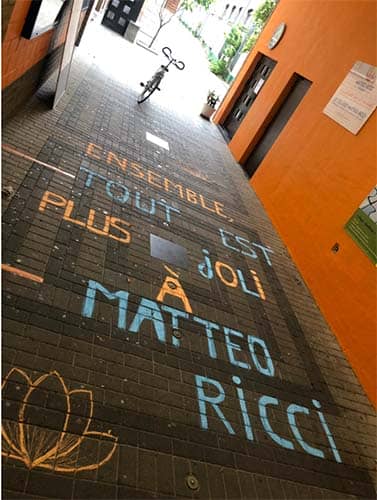 ENSEMBLE,
TOUT EST
PLUS JOLI
À
MATTEO
RICCI